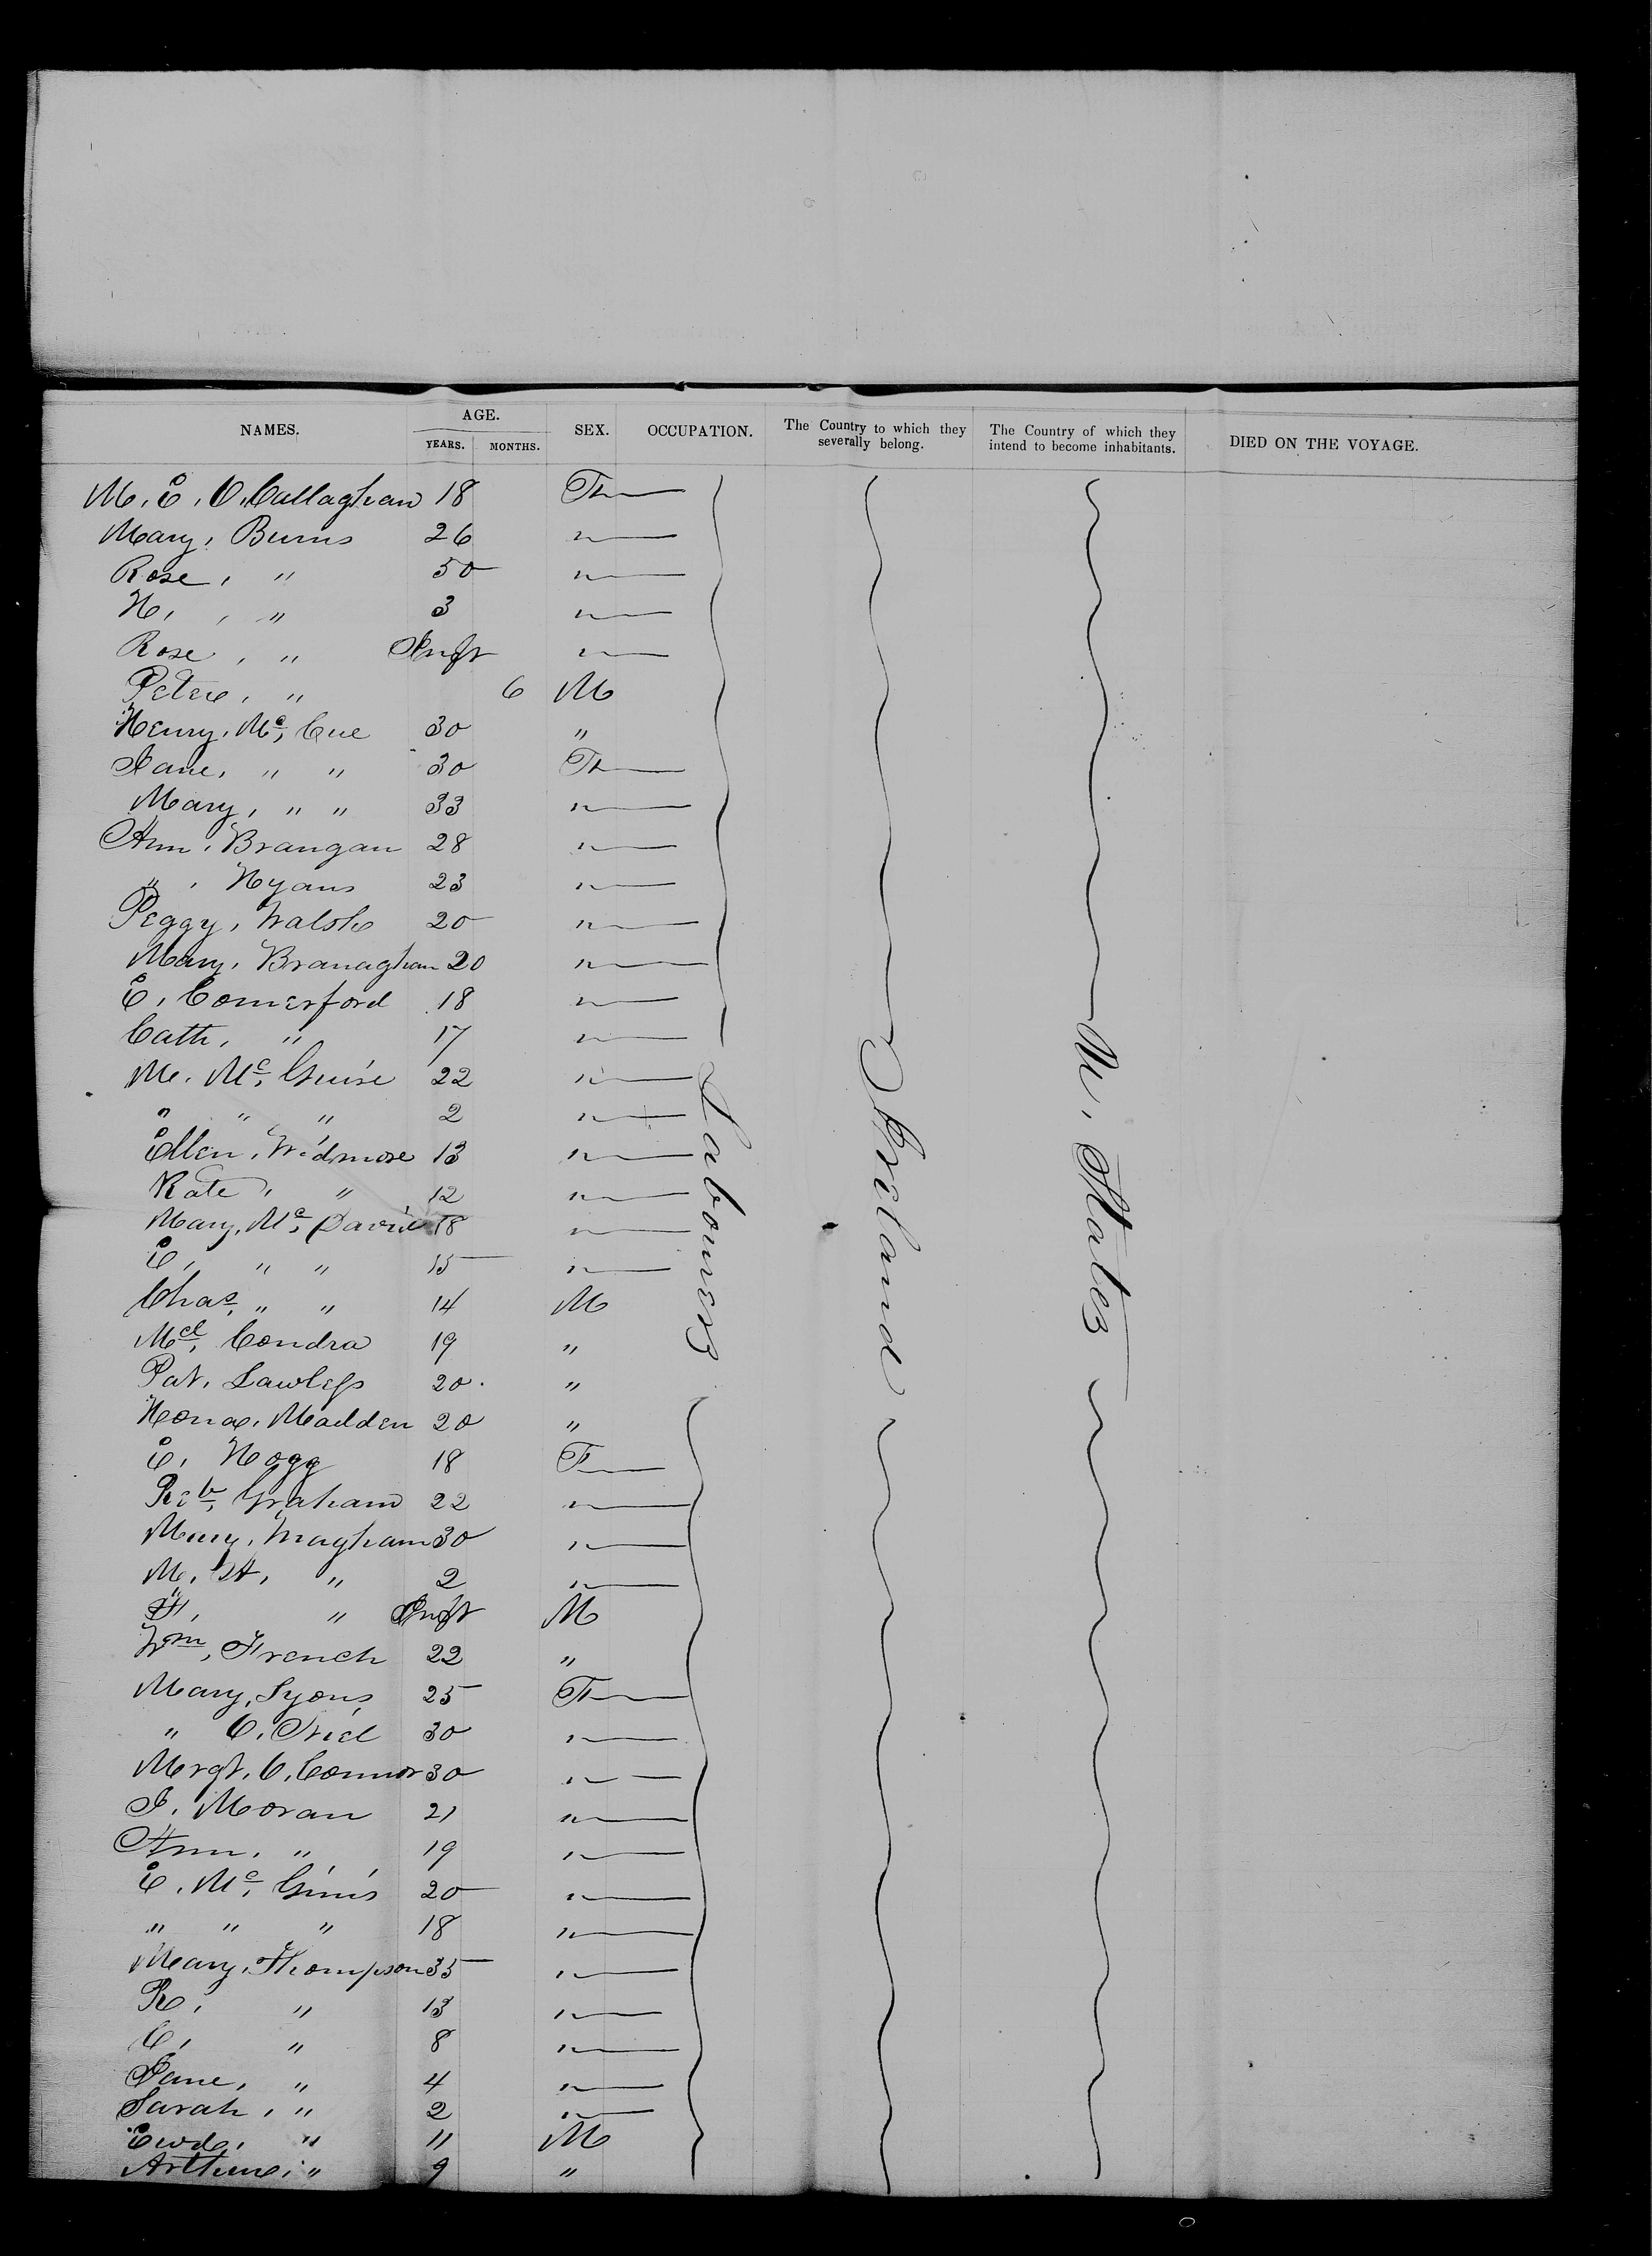 NAMES. AGE. YEARS. MONTHS. SEX. OCCUPATION. The Country to which they severally belong. The Country of which they intend to become inhabitants. DIED ON THE VOYAGE.
M. E. O. Callaghan 18 F
Mary, Burns 26 "
Rose, " 50 "
H, , " 3 "
Rose, " Inft "
Peter, " 6 M
Henry, Mc, Cue 30 "
Jane, " " 30 F
Mary, " " 33 "
Ann, Brangan 28 "
" , Hyans 23 "
Peggy, Walsh 20 "
Mary, Branaghan 20 "
E, Comerford 18 "
Cath, " 17 "
M. Mc, Guise 22 "
" " " 2 "
Ellen, Widmore 13 "
Kate, " 12 "
Mary, Mc, David 18 "
E, " " 15 "
Chas, " " 14 M
Ml, Condra 19 "
Pat, Lawless 20 "
Honor, Madden 20 "
E, Hogg 18 F
Reb, Graham 22 "
Mary, 30 "
M. H, " 2 "
" Inft M
Wm, French 22 "
Mary, Lyons 25 F
" O, Neil 30 "
Mrgt, O, Connor 30 "
J. Moran 21 "
Ann, " 19 "
E, Mc, Ginis 20 "
" " " 18 "
Mary, Thompson 35 "
R, " 13 "
C, " 8 "
Jane, " 4 "
Sarah, " 2 "
Ewd, " 11 M
Arthur, " 9 "
Labourers
Ireland
U. States